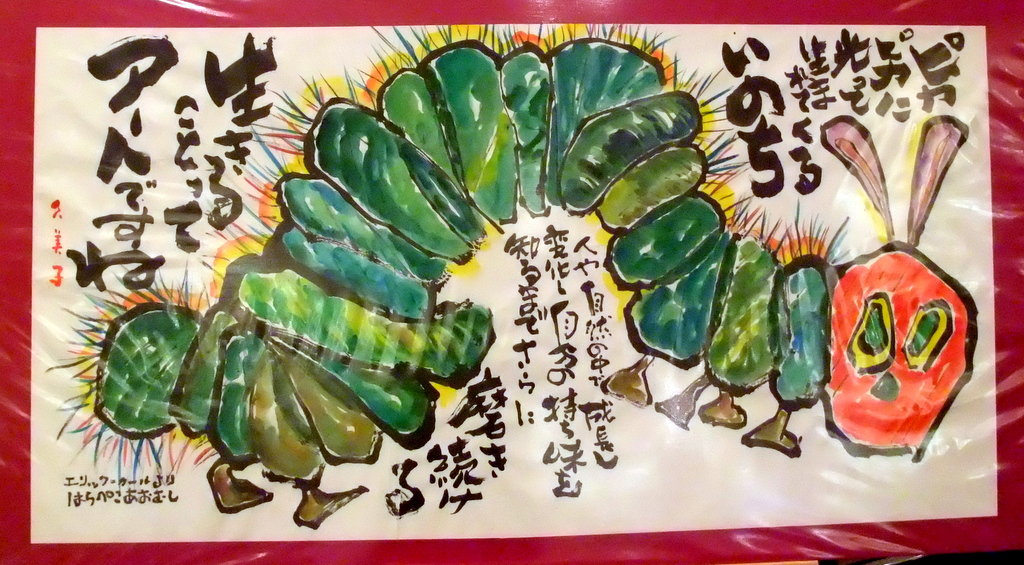 ピカ
ピカに
光って
生まれてくる
いのち
人や自然の中で成長し
変化し自分の持ち味を
知るなかでさらに
磨き
続け
る
生きる
ことって
アートですね
久美子
エリック・カールより
はらぺこあおむし